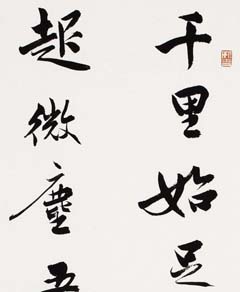 千里始足
起微塵吾